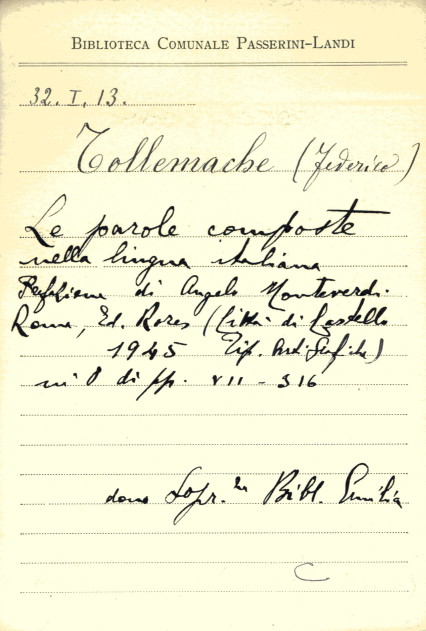 BIBLIOTECA COMUNALE PASSERINI-LANDI
32. I. 13.
Tollemache (Federico)
Le parole composte
nella lingua italiana
Prefazione di Angelo Monteverdi.
Roma, Ed. Rores (Città di Castello
1945 Tip. Arti Grafiche)
in 8 di pp. VII - 316
dono Sopr.za Bibl. Emilia
C